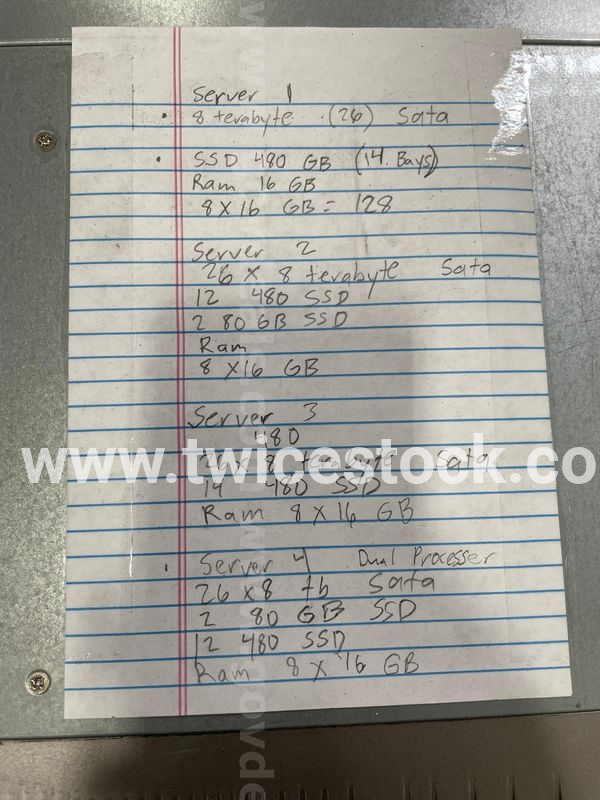 Server 1
• 8 terabyte (26) Sata
• SSD 480 GB (14. Bays)
Ram 16 GB
8 X 16 GB = 128
Server 2
26 X 8 terabyte Sata
12 480 SSD
2 80 GB SSD
Ram
8 X16 GB
Server 3
480
26 X 8 terabyte Sata
www.twicestock.co
14 480 SSD
Ram 8 X 16 GB
• Server 4 Dual Processer
26 X 8 tb Sata
2 80 GB SSD
12 480 SSD
Ram 8 X 16 GB